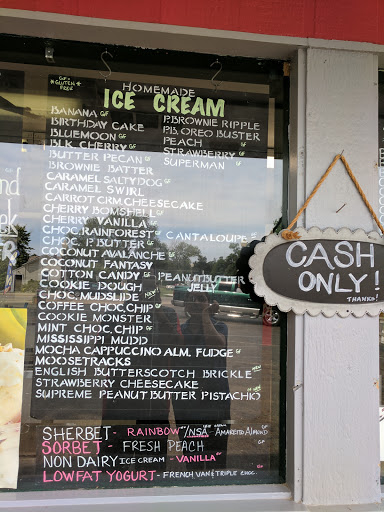 GF =
*GLUTEN*
FREE
HOMEMADE
ICE CREAM
BANANA GF
BIRTHDAY CAKE
BLUEMOON GF
BLK CHERRY GF
BUTTER PECAN GF
BROWNIE BATTER
CARAMEL SALTYDOG GF
CARAMEL SWIRL
CARROT CRM CHEESECAKE
CHERRY BOMBSHELL GF
CHERRY VANILLA GF
CHOC. RAINFOREST
CHOC. P. BUTTER GF
COCONUT AVALANCHE GF
COCONUT FANTASY
COTTON CANDY GF
COOKIE DOUGH
CHOC. MUDSLIDE
COFFEE CHOC. CHIP GF
COOKIE MONSTER
MINT CHOC. CHIP GF
MISSISSIPPI MUDD
MOCHA CAPPUCCINO ALM. FUDGE GF
MOOSETRACKS
ENGLISH BUTTERSCOTCH BRICKLE
STRAWBERRY CHEESECAKE
SUPREME PEANUT BUTTER PISTACHIO
P.BROWNIE RIPPLE
P.B. OREO BUSTER
PEACH GF
STRAWBERRY GF
SUPERMAN GF
CANTALOUPE GF
PEANUTBUTTER
JELLY
SHERBET - RAINBOW GF /NSA - AMARETTO ALMOND GF
SORBET - FRESH PEACH GF
NON DAIRY ICE CREAM - VANILLA GF
LOWFAT YOGURT - FRENCH VAN & TRIPLE CHOC.
CASH
ONLY!
THANKS!